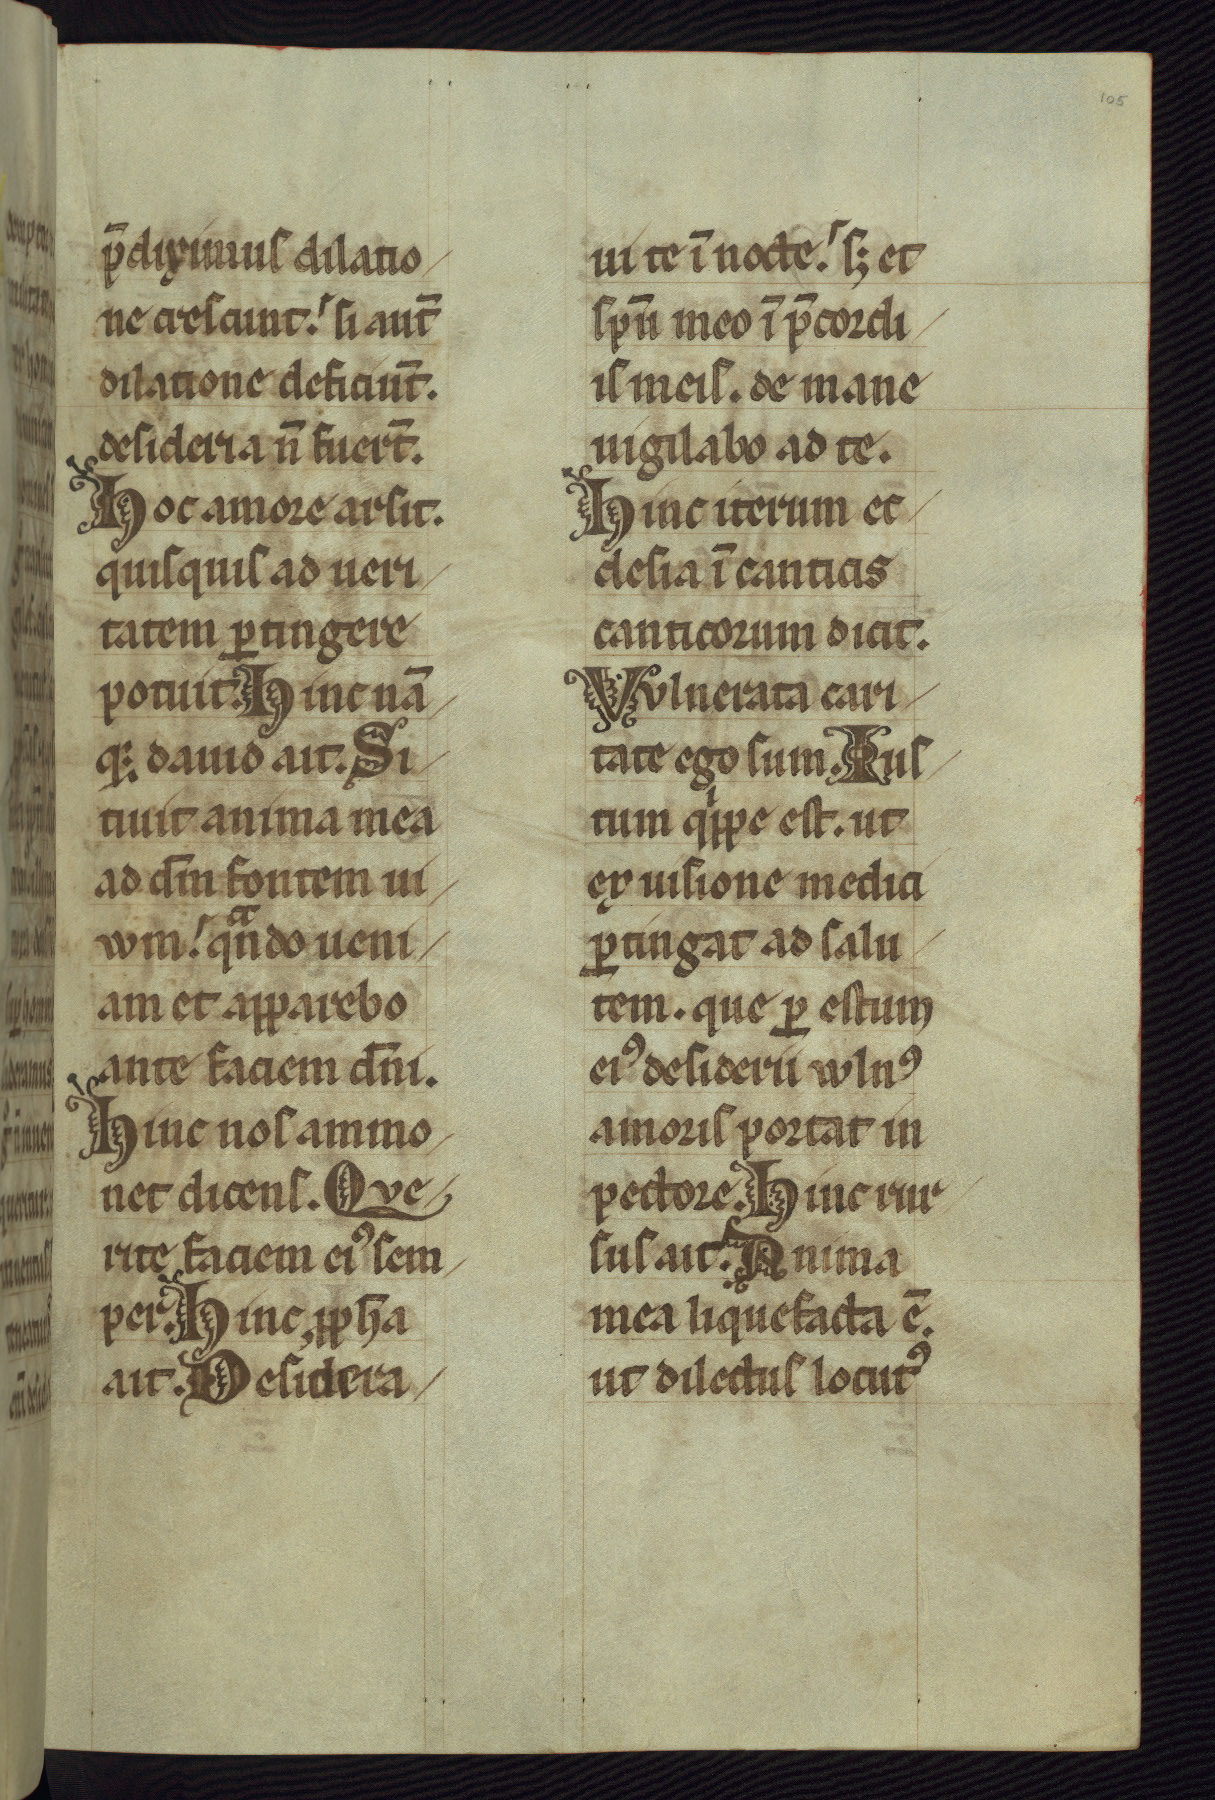 105
p̄diximus dilatio
ne crescunt. si aut̄
dilatione deficiunt̄.
desideria n̄ fuert̄.
Hoc amore arsit.
quisquis ad ueri
tatem ꝑtingere
potuit. Hinc nā
q; dauid ait. Si
tiuit anima mea
ad dm̄ fontem ui
wm. qᵃndo ueni
am et apparebo
ante faciem dn̄i.
Hinc nos ammo
net dicens. Qve
rite faciem eiꝰ sem
per. Hinc ꝓph̄a
ait. Desidera
ui te ī nocte. sꝫ et
spū meo ī p̄cordi
is meis. de mane
uigilabo ad te.
Hinc iterum ec
clesia ī canticis
canticorum dicit.
Vvlnerata cari
tate ego sum. Ius
tum qⁱppe est. ut
ex uisione medici
ꝑtingat ad salu
tem. que ꝑ estum
eiꝰ desiderii wlnꝰ
amoris portat in
pectore. Hinc rur
sus ait. Anima
mea liquefacta ē.
ut dilectus locutꝰ